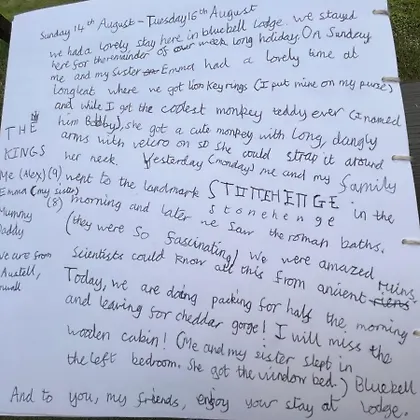 Sunday 14th August - Tuesday 16th August
We had a lovely stay here in bluebell lodge. we stayed
here for the remainder of our week long holiday. On Sunday
me and my sister Emma had a lovely time at
longleat where we got lion keyrings (I put mine on my purse)
and while I got the coolest monkey teddy ever (I named
him Bobby), she got a cute monkey with long, dangly
arms with velcro on so she could strap it around
her neck. Yesterday (monday) me and my family
went to the landmark STONEHENGE in the
stonehenge
morning and later we saw the roman baths.
(they were so fascinating) We were amazed
scientists could know all this from anciant ruins.
Today, we are doing packing for half the morning
and leaving for cheddar gorge! I will miss the
wooden cabin! (Me and my sister slept in
the left bedroom. She got the window bed.) Bluebell
And to you, my friends, enjoy your stay at lodge.
THE
KINGS
Me (Alex) (9)
Emma (my sister)
(8)
Mummy
Daddy
we are from
Austell,